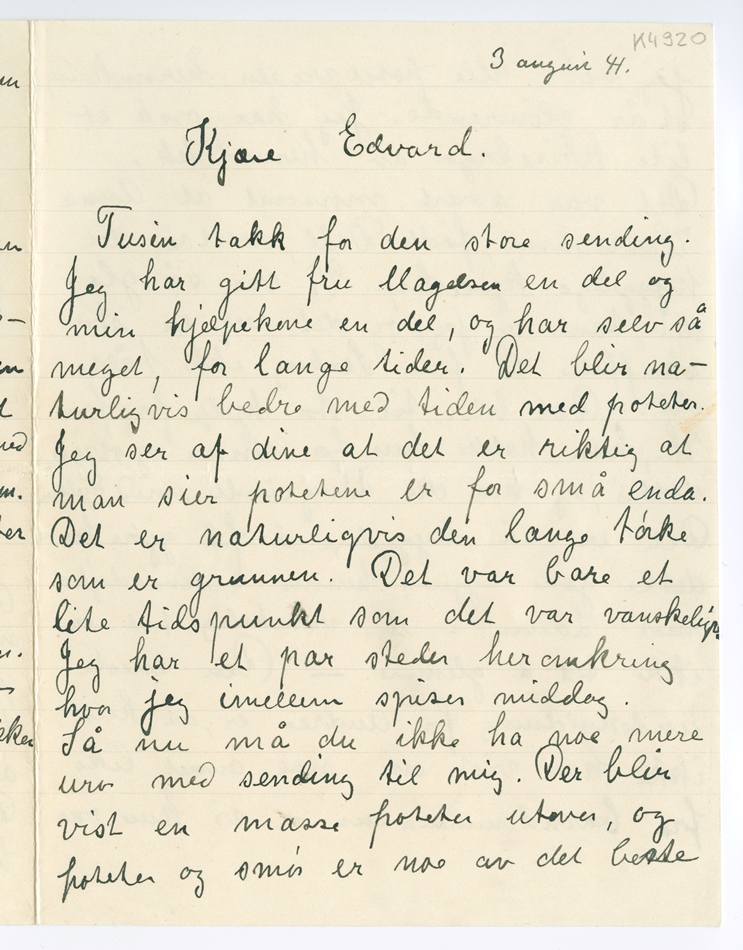 K4920
3 august 41.
Kjære Edvard.
Tusen takk for den store sending.
Jeg har gitt fru Magelsen en del og
min hjelpekone en del, og har selv så
meget, for lange tider. Det blir na-
turligvis bedre med tiden med poteter.
Jeg ser af dine at det er riktig at
man sier potetene er for små enda.
Det er naturligvis den lange tørke
som er grunnen. Det var bare et
lite tidspunkt som det var vanskelig.
Jeg har et par steder heromkring
hvor jeg imellem spiser middag.
Så nu må du ikke ha noe mere
uro med sending til mig. Der blir
vist en masse poteter utover, og
poteter og smør er noe av det beste